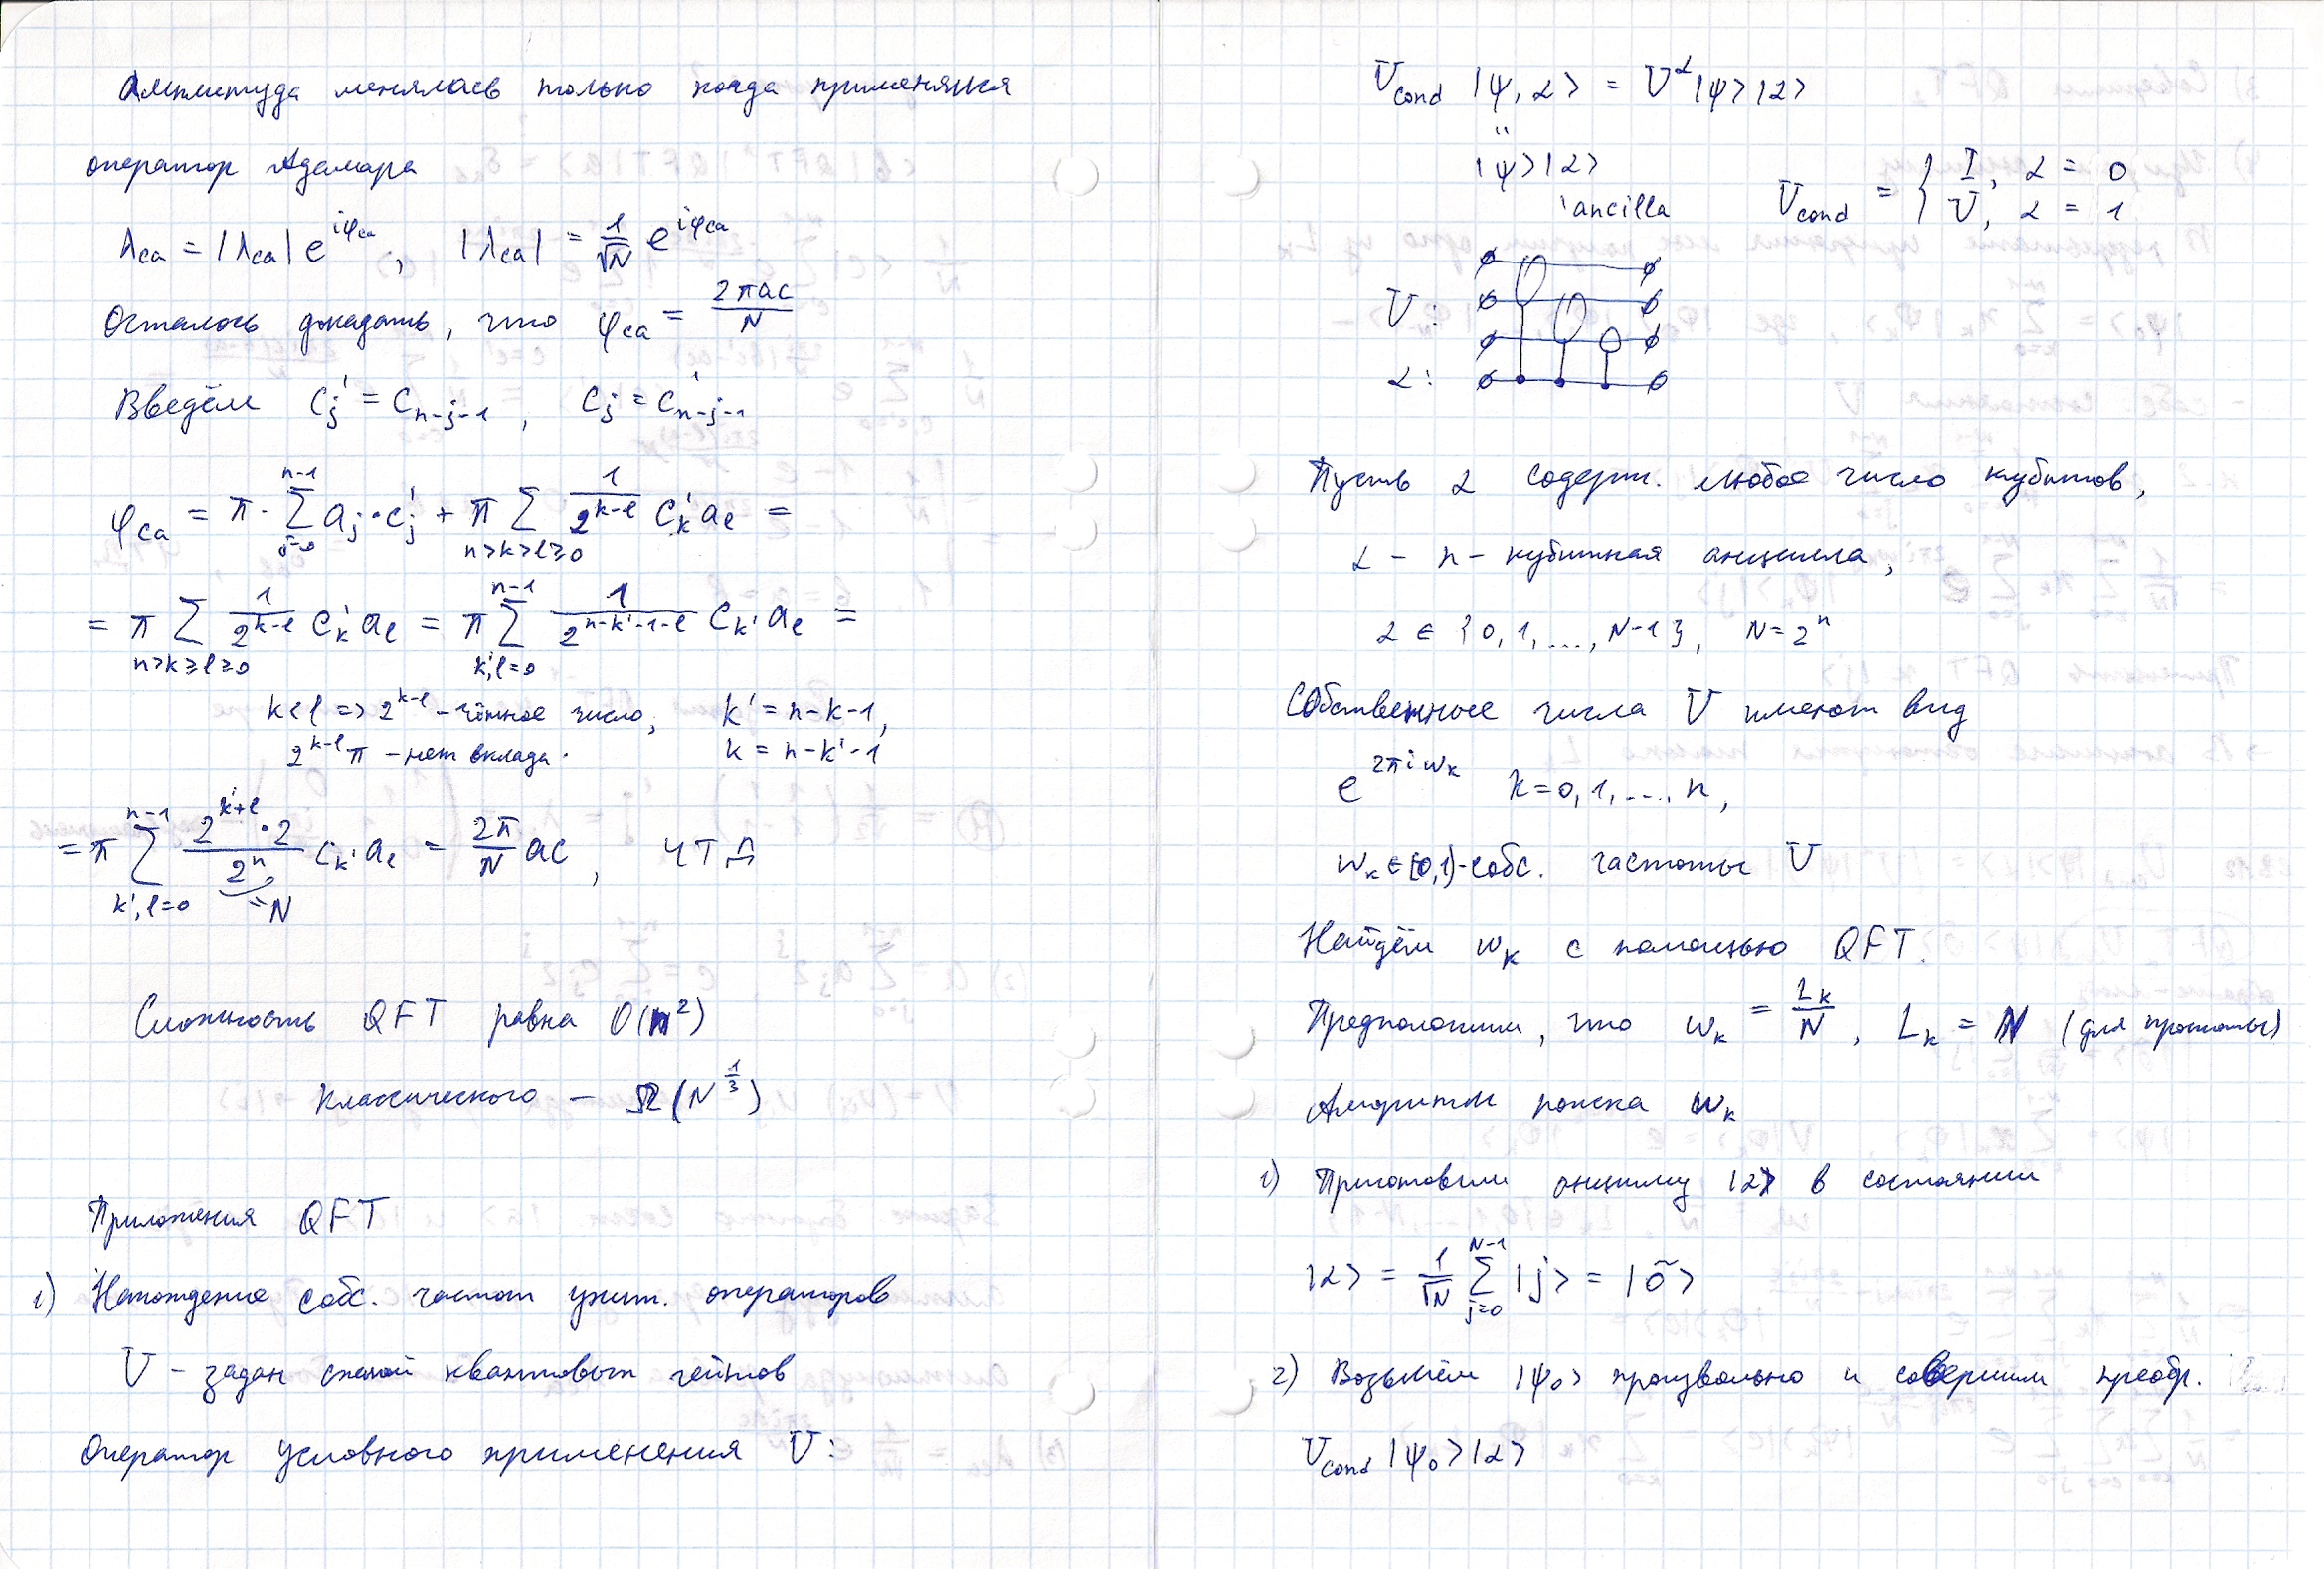 Амплитуда менялась только когда применялся
оператор Адамара
λ_ca = |λ_ca| e^{iφ_ca}, |λ_ca| = 1/√N e^{iφ_ca}
Осталось доказать, что φ_ca = 2πac/N
Введём c'_j = c_{n-j-1}, c_j = c'_{n-j-1}
φ_ca = π · Σ_{j=0}^{n-1} a_j · c'_j + π Σ_{n>k>l≥0} 1/2^{k-l} c'_k a_l =
= π Σ_{n>k≥l≥0} 1/2^{k-l} c'_k a_l = π Σ_{k',l=0}^{n-1} 1/2^{n-k'-1-l} c_{k'} a_l =
k<l => 2^{k-l} – чётное число, k' = n-k-1,
2^{k-l} π – нет вклада. k = n-k'-1
= π Σ_{k',l=0}^{n-1} 2^{k'+l}·2/2^n c_{k'} a_l = 2π/N ac, ЧТД
=N
Сложность QFT равна O(n²)
Классического – Ω(N^{1/3})
Приложения QFT
1) Нахождение собс. частот унит. операторов
U – задан схемой квантовых гейтов
Оператор условного применения U:
U_cond |ψ, α> = U^α |ψ>|α>
"
|ψ>|α>
ancilla
U_cond = { I, α = 0
U, α = 1
U:
α:
Пусть α содерж. любое число кубитов,
α – n – кубитная анцилла,
α ∈ {0, 1, ..., N-1}, N = 2^n
Собственные числа U имеют вид
e^{2πi w_k} k = 0, 1, ..., n,
w_k ∈ [0,1) - собс. частоты U
Найдём w_k с помощью QFT.
Предположим, что w_k = L_k/N, L_k = N (для простоты)
Алгоритм поиска w_k
1) Приготовим анциллу |α> в состоянии
|α> = 1/√N Σ_{j=0}^{N-1} |j> = |õ>
2) Возьмём |ψ_0> произвольно и совершим преобр.
U_cond |ψ_0>|α>